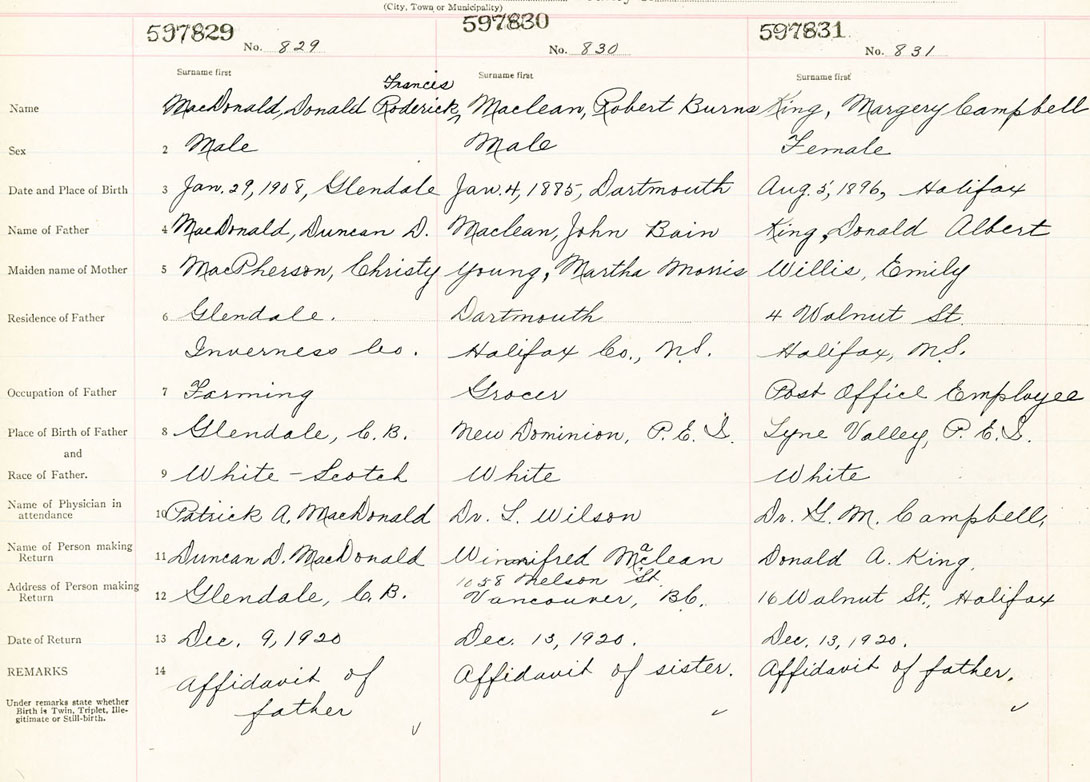 (City, Town or Municipality)
597829 597830 597831
No. 829 No. 830 No. 831
Surname first Surname first Surname first
Francis
Name MacDonald, Donald Roderick, Maclean, Robert Burns King, Margery Campbell
Sex 2 Male Male Female
Date and Place of Birth 3 Jan. 29, 1908, Glendale Jan. 4, 1885, Dartmouth Aug. 5, 1896, Halifax
Name of Father 4 MacDonald, Duncan D. Maclean, John Bain King, Donald Albert
Maiden name of Mother 5 MacPherson, Christy Young, Martha Morris Willis, Emily
Residence of Father 6 Glendale. Dartmouth 4 Walnut St.
Inverness Co. Halifax Co., N.S. Halifax, N.S.
Occupation of Father 7 Farming Grocer Post Office Employee
Place of Birth of Father 8 Glendale, C.B. New Dominion, P.E.I. Lyne Valley, P.E.I.
and
Race of Father. 9 White - Scotch White White
Name of Physician in attendance 10 Patrick A. MacDonald Dr. L. Wilson Dr. G. M. Campbell,
Name of Person making Return 11 Duncan D. MacDonald Winnifred Maclean Donald A. King.
1038 Nelson St.
Address of Person making Return 12 Glendale, C.B. Vancouver, B.C. 16 Walnut St., Halifax
Date of Return 13 Dec. 9, 1920 Dec. 13, 1920. Dec. 13, 1920.
REMARKS 14 Affidavit of Affidavit of sister. Affidavit of father.
father
Under remarks state whether
Birth is Twin, Triplet, Ille-
gitimate or Still-birth.